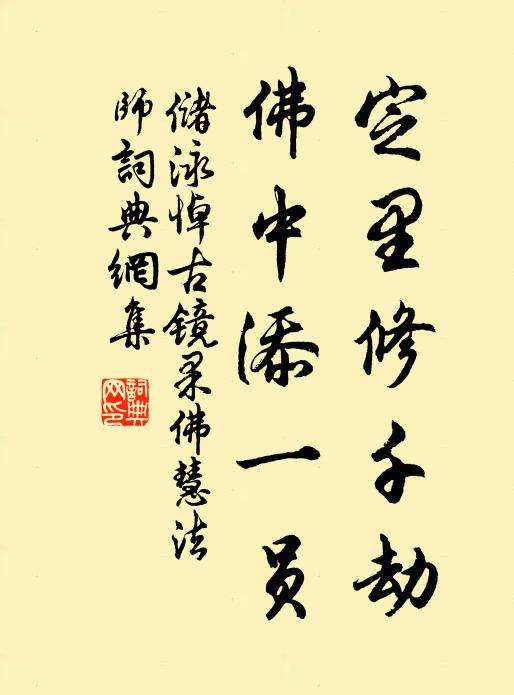 定里修千劫
佛中添一员
储泳悼古镜杲佛慧法
師詞典網集
詞典
网印